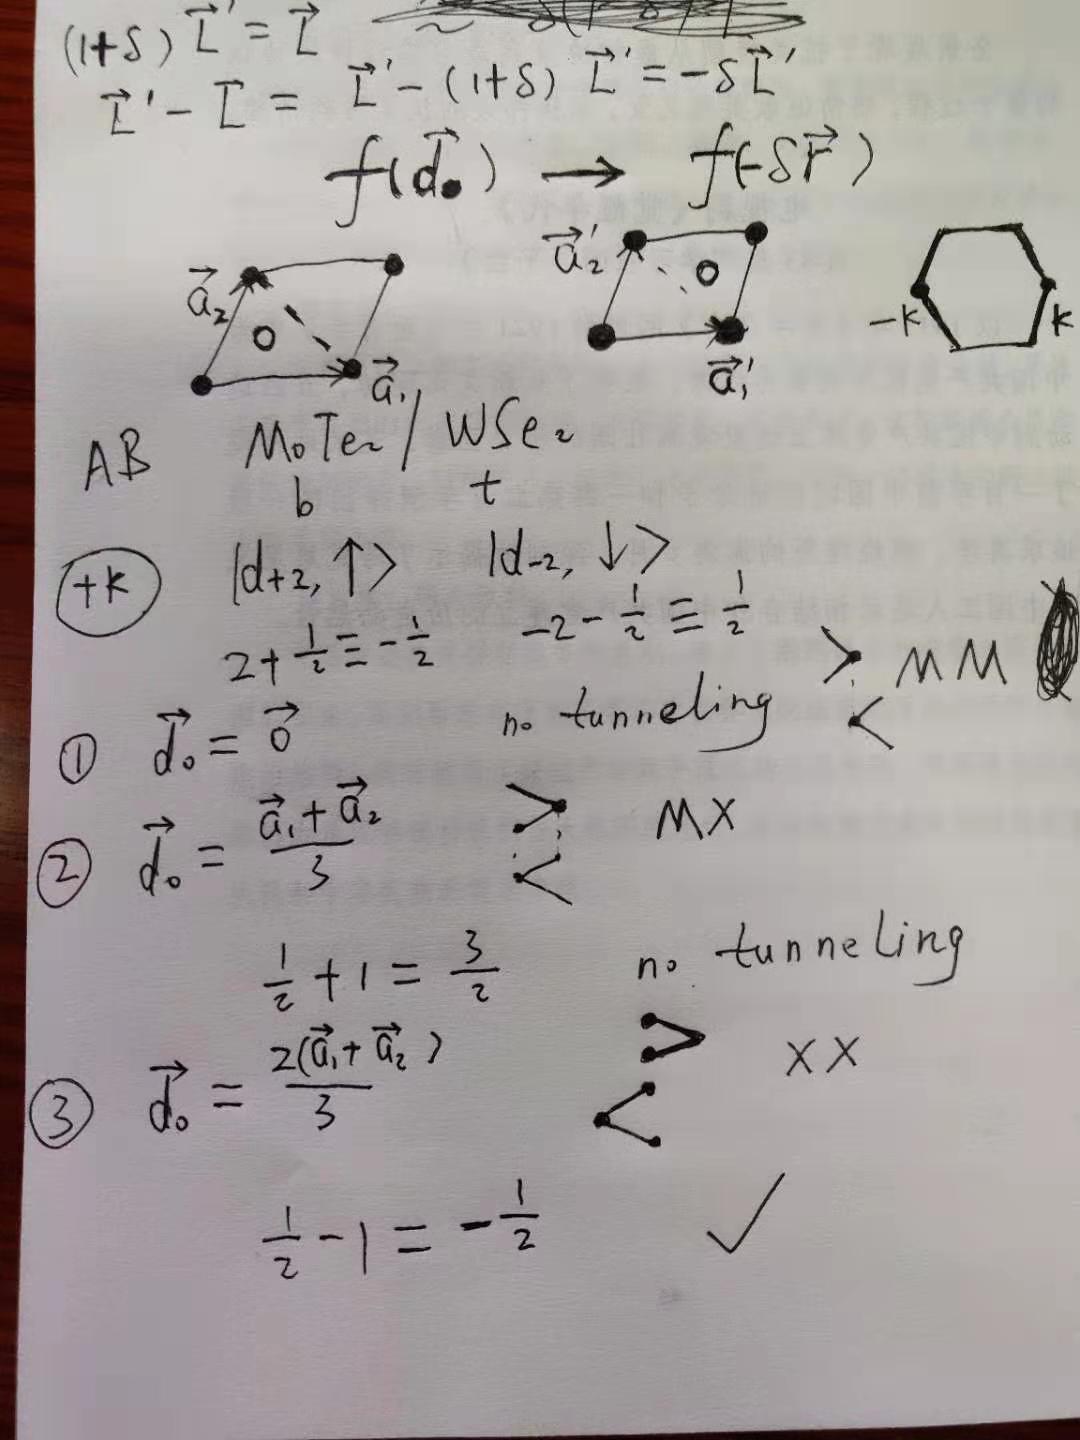 (1+δ) L⃗' = L⃗
L⃗' - L⃗ = L⃗' - (1+δ) L⃗' = -δL⃗'
f(d⃗₀) → f(-δr⃗)
a⃗₂ a⃗₁ a⃗₂' a⃗₁' -K K
AB MoTe₂ / WSe₂
b t
+K |d+2, ↑> |d-2, ↓>
2 + 1/2 ≡ -1/2 -2 - 1/2 ≡ 1/2
MM
① d⃗₀ = 0⃗ no tunneling
② d⃗₀ = (a⃗₁ + a⃗₂)/3 MX
1/2 + 1 = 3/2 no tunneling
③ d⃗₀ = 2(a⃗₁ + a⃗₂)/3 XX
1/2 - 1 = -1/2 ✓